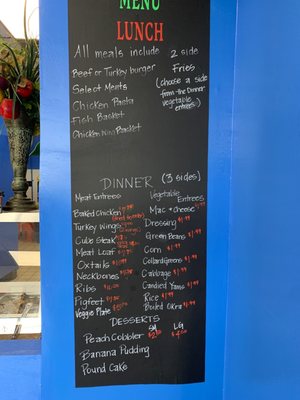 MENU
LUNCH
All meals include 2 side
Beef or Turkey burger
Select Meats
Chicken Pasta
Fish Basket
Chicken Wing Basket
Fries
(choose a side
from the Dinner
vegetable
entrees)
DINNER (3 sides)
Meat Entrees
Baked Chicken
Turkey Wings
Cube Steak
Meat Loaf
Oxtails
Neckbones
Ribs
Pigfeet
Veggie Plate
Vegetable
Entrees
Mac & cheese
Dressing $1.99
Green Beans $1.99
Corn $1.99
Collard Greens $1.99
Cabbage $1.99
Candied Yams $1.99
Rice $1.99
Boiled Okra $1.99
DESSERTS
SM LG
Peach Cobbler
Banana Pudding
Pound Cake